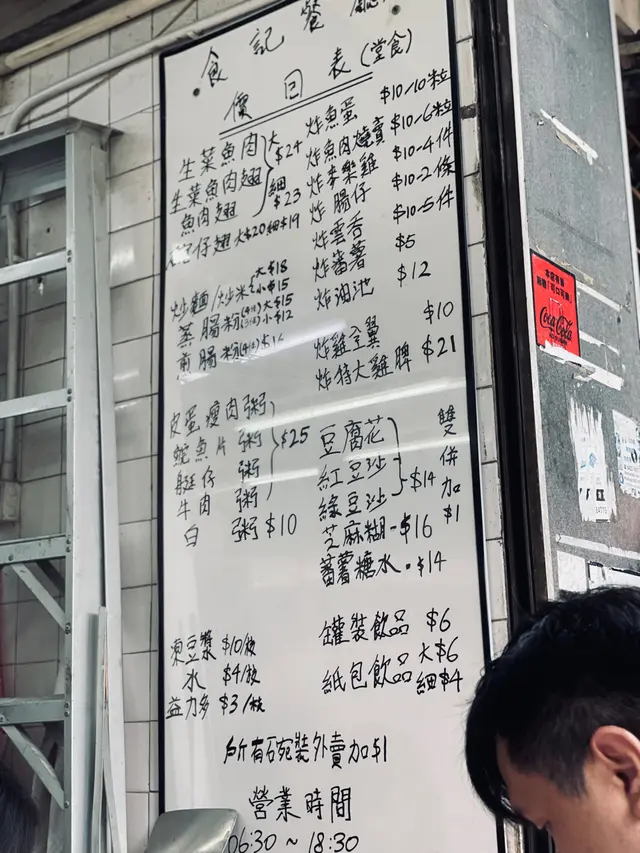 食記餐廳
價目表(堂食)
生菜魚肉
生菜魚肉翅
魚肉翅
大$24
細$23
仔翅大$20細$19
炒麵/炒米 大$18 小$15
蒸腸粉 大$15 小$12
煎腸粉
皮蛋瘦肉粥
鯇魚片粥
艇仔粥
牛肉粥
$25
白粥$10
凍豆漿 $10/枝
水 $4/枝
益力多 $3/枝
炸魚蛋 $10/10粒
炸魚肉燒賣 $10-6粒
炸麥樂雞 $10-4件
炸腸仔 $10-2條
炸雲吞 $10-5件
炸蕃薯 $5
炸油池 $12
炸雞全翼 $10
炸特大雞髀 $21
豆腐花
紅豆沙
綠豆沙
$14
雙併加$1
芝麻糊-$16
蕃薯糖水.$14
罐裝飲品 $6
紙包飲品 大$6 細$4
所有碗裝外賣加$1
營業時間
06:30 ~ 18:30
Coca-Cola